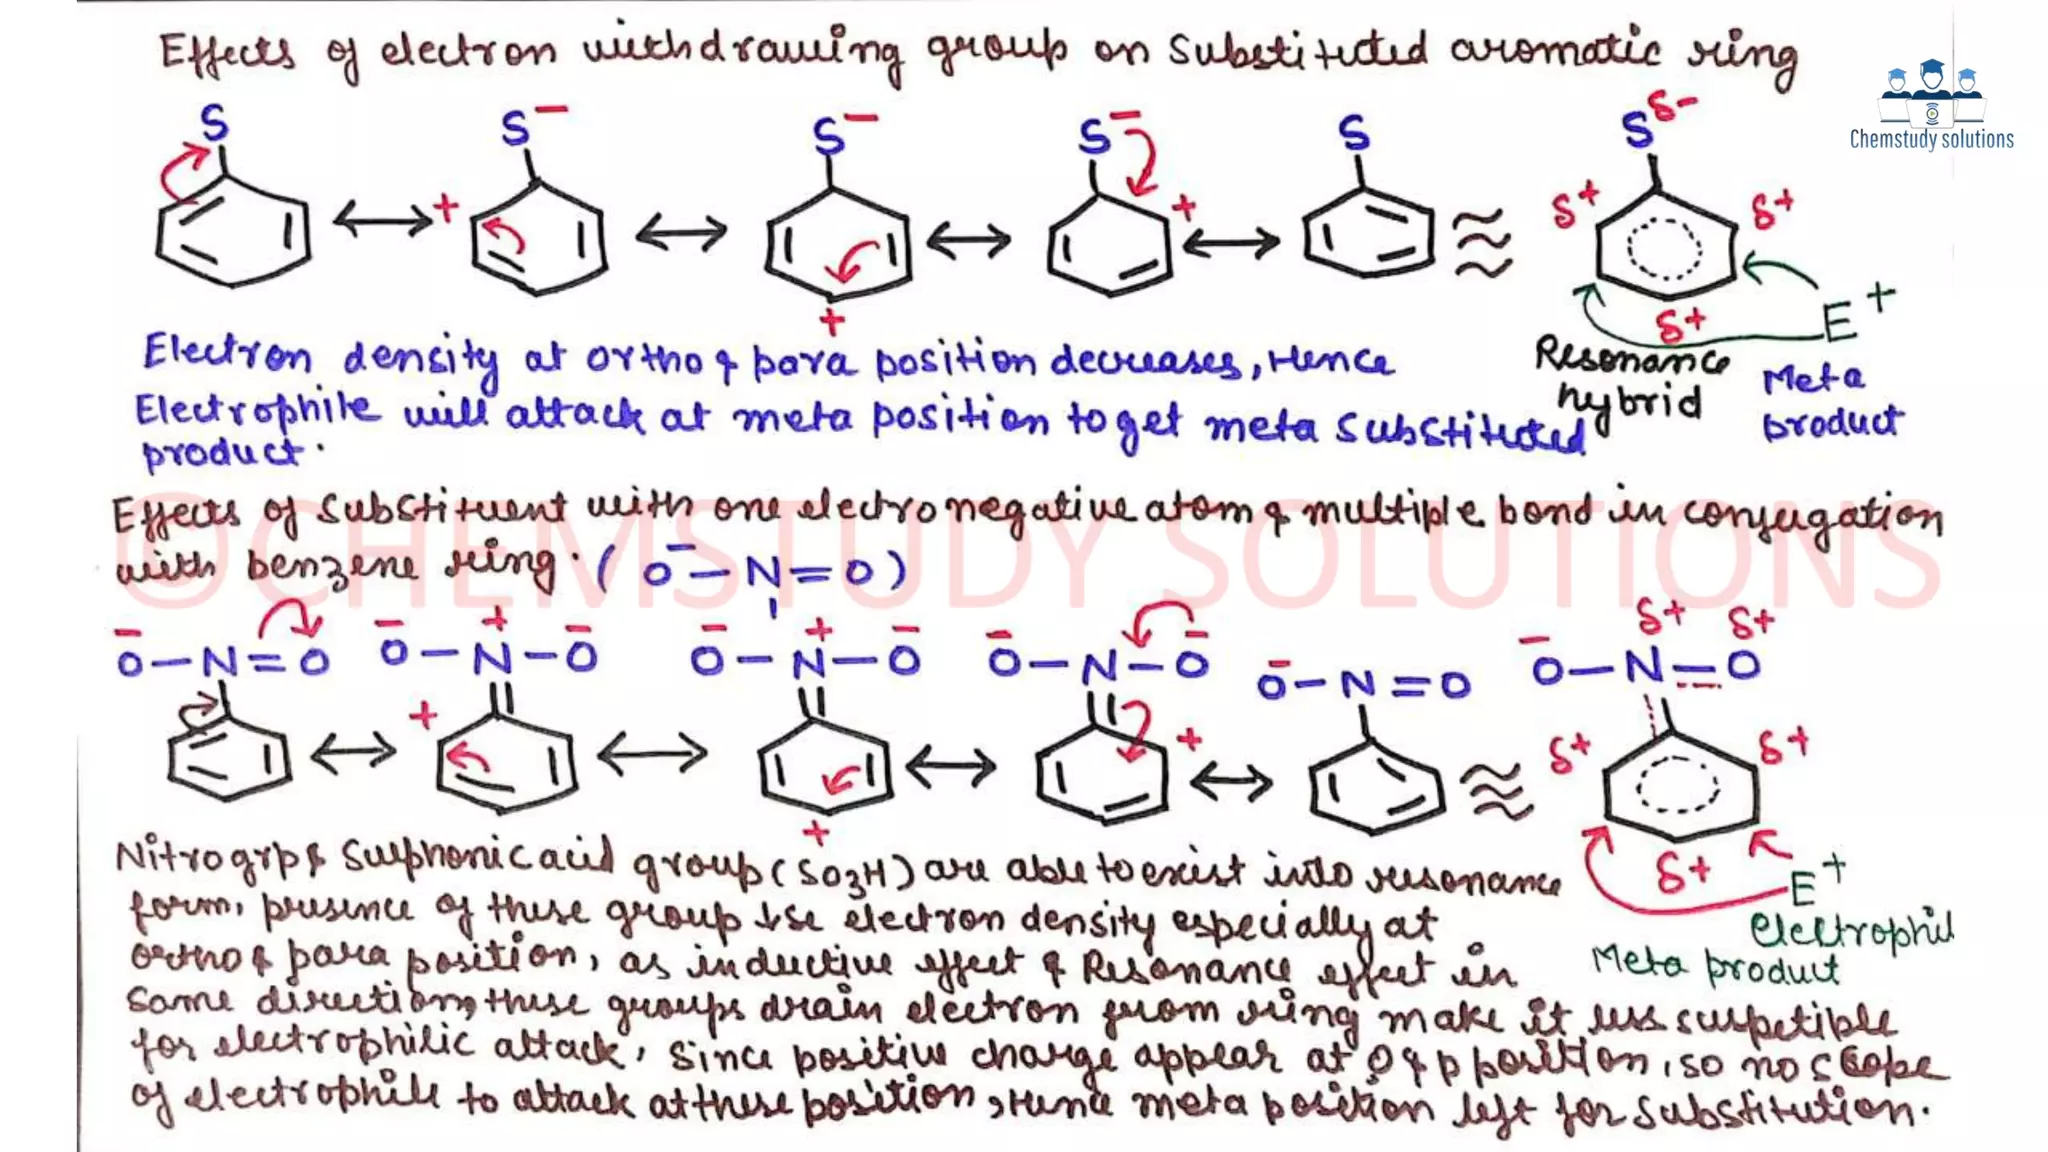 Effects of electron withdrawing group on substituted aromatic ring
Chemstudy solutions
S S− S− S− S Sδ−
+ + δ+ δ+
+ δ+ E+
Electron density at ortho & para position decreases, Hence
Electrophile will attack at meta position to get meta substituted
product.
Resonance
hybrid
Meta
product
©CHEMSTUDY SOLUTIONS
Effects of substituent with one electronegative atom & multiple bond in conjugation
with benzene ring. (O−−N=O)
− − + − − + − − − − δ+ δ+
O−N=O O−N−O O−N−O O−N−O O−N=O O−N=O
+ + δ+ δ+
+ δ+ E+
Electrophil
Meta product
Nitro grp & Sulphonic acid group (SO3H) are able to exist into resonance
form, presence of these group ↓se electron density especially at
ortho & para position, as inductive effect & Resonance effect in
same direction, these groups drain electron from ring make it less suspetible
for electrophilic attack, since positive charge appear at O & p position, so no scope
of electrophile to attack at these position, Hence meta position left for substitution.